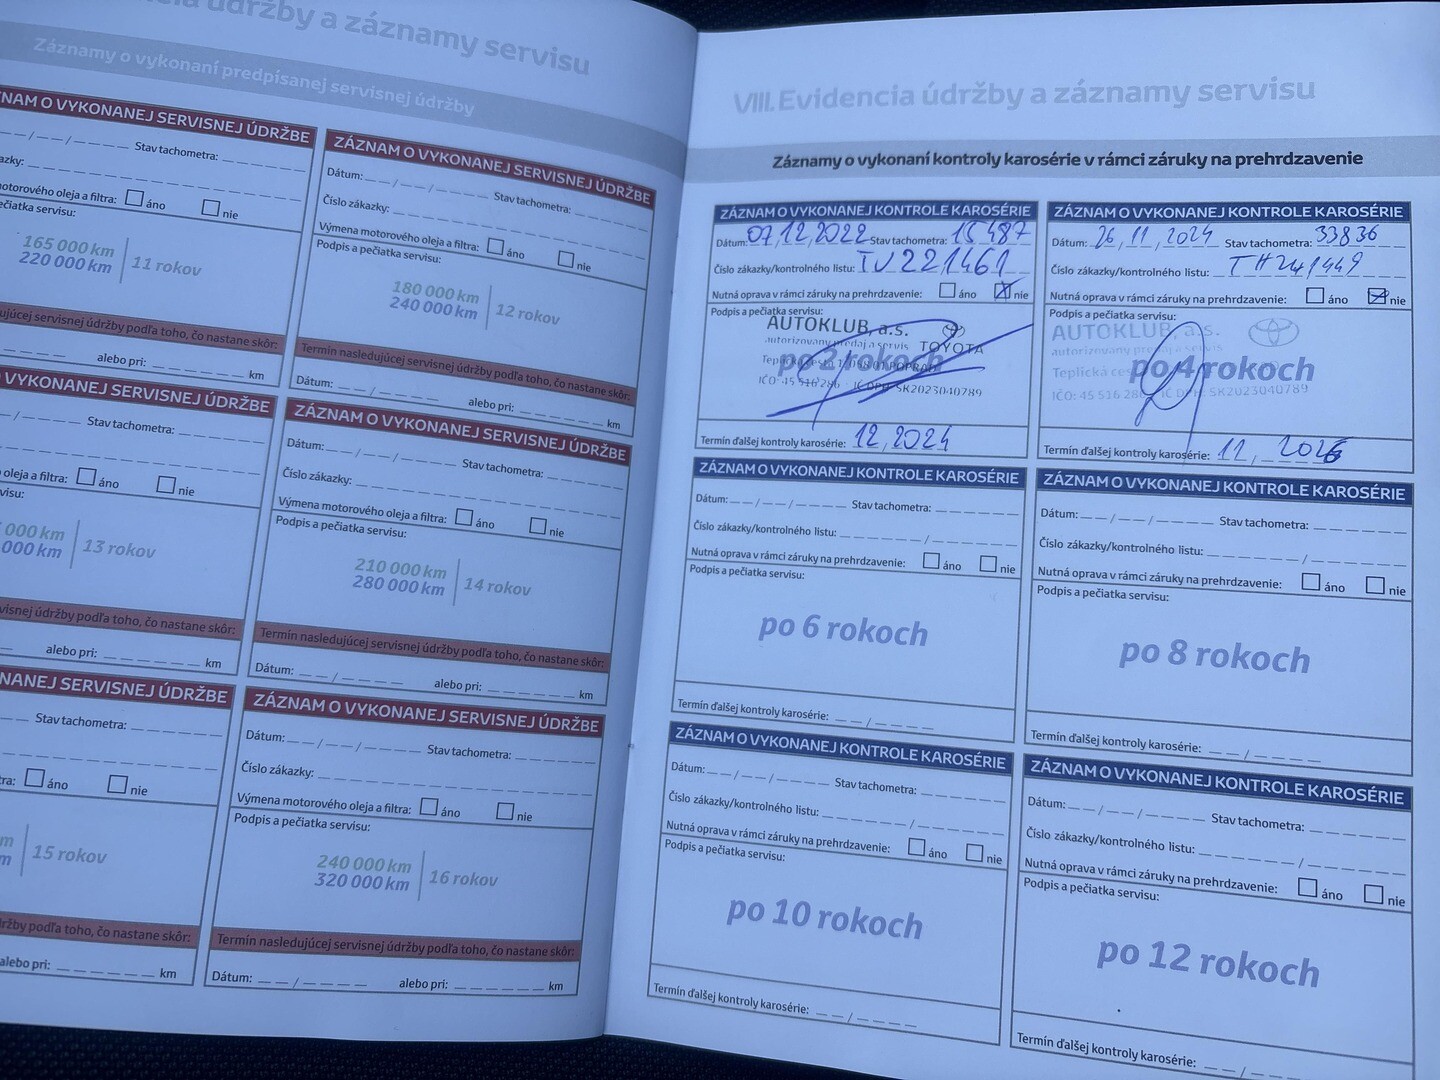 cia údržby a záznamy servisu
Záznamy o vykonaní predpísanej servisnej údržby
NAM O VYKONANEJ SERVISNEJ ÚDRŽBE
Stav tachometra:
azky:
motorového oleja a filtra: áno nie
pečiatka servisu:
165 000 km
220 000 km
11 rokov
ujúcej servisnej údržby podľa toho, čo nastane skôr:
alebo pri: km
ZÁZNAM O VYKONANEJ SERVISNEJ ÚDRŽBE
Dátum: / / Stav tachometra:
Číslo zákazky:
Výmena motorového oleja a filtra: áno nie
Podpis a pečiatka servisu:
180 000 km
240 000 km
12 rokov
Termín nasledujúcej servisnej údržby podľa toho, čo nastane skôr:
Dátum: / / alebo pri: km
VYKONANEJ SERVISNEJ ÚDRŽBE
Stav tachometra:
oleja a filtra: áno nie
visu:
000 km
000 km
13 rokov
visnej údržby podľa toho, čo nastane skôr:
alebo pri: km
ZÁZNAM O VYKONANEJ SERVISNEJ ÚDRŽBE
Dátum: / / Stav tachometra:
Číslo zákazky:
Výmena motorového oleja a filtra: áno nie
Podpis a pečiatka servisu:
210 000 km
280 000 km
14 rokov
Termín nasledujúcej servisnej údržby podľa toho, čo nastane skôr:
Dátum: / / alebo pri: km
NANEJ SERVISNEJ ÚDRŽBE
Stav tachometra:
tra: áno nie
m
m
15 rokov
ržby podľa toho, čo nastane skôr:
alebo pri: km
ZÁZNAM O VYKONANEJ SERVISNEJ ÚDRŽBE
Dátum: / / Stav tachometra:
Číslo zákazky:
Výmena motorového oleja a filtra: áno nie
Podpis a pečiatka servisu:
240 000 km
320 000 km
16 rokov
Termín nasledujúcej servisnej údržby podľa toho, čo nastane skôr:
Dátum: / / alebo pri: km
VIII. Evidencia údržby a záznamy servisu
Záznamy o vykonaní kontroly karosérie v rámci záruky na prehrdzavenie
ZÁZNAM O VYKONANEJ KONTROLE KAROSÉRIE
Dátum: 07,12,2022 Stav tachometra: 15487
Číslo zákazky/kontrolného listu: TV221461
Nutná oprava v rámci záruky na prehrdzavenie: áno nie
Podpis a pečiatka servisu:
AUTOKLUB, a.s.
autorizovaný predaj a servis TOYOTA
po 2 rokoch
POPRAD
IČO: 45 516 286 IČ DPH: SK2023040789
Termín ďalšej kontroly karosérie: 12, 2024
ZÁZNAM O VYKONANEJ KONTROLE KAROSÉRIE
Dátum: 26, 11, 2024 Stav tachometra: 33836
Číslo zákazky/kontrolného listu: TH241449
Nutná oprava v rámci záruky na prehrdzavenie: áno nie
Podpis a pečiatka servisu:
AUTOKLUB, a.s.
autorizovaný predaj a servis
Teplická
po 4 rokoch
IČO: 45 516 286 IČ DPH: SK2023040789
Termín ďalšej kontroly karosérie: 11, 2026
ZÁZNAM O VYKONANEJ KONTROLE KAROSÉRIE
Dátum: / / Stav tachometra:
Číslo zákazky/kontrolného listu: /
Nutná oprava v rámci záruky na prehrdzavenie: áno nie
Podpis a pečiatka servisu:
po 6 rokoch
Termín ďalšej kontroly karosérie: /
ZÁZNAM O VYKONANEJ KONTROLE KAROSÉRIE
Dátum: / / Stav tachometra:
Číslo zákazky/kontrolného listu: /
Nutná oprava v rámci záruky na prehrdzavenie: áno nie
Podpis a pečiatka servisu:
po 8 rokoch
Termín ďalšej kontroly karosérie: /
ZÁZNAM O VYKONANEJ KONTROLE KAROSÉRIE
Dátum: / / Stav tachometra:
Číslo zákazky/kontrolného listu: /
Nutná oprava v rámci záruky na prehrdzavenie: áno nie
Podpis a pečiatka servisu:
po 10 rokoch
Termín ďalšej kontroly karosérie: /
ZÁZNAM O VYKONANEJ KONTROLE KAROSÉRIE
Dátum: / / Stav tachometra:
Číslo zákazky/kontrolného listu: /
Nutná oprava v rámci záruky na prehrdzavenie: áno nie
Podpis a pečiatka servisu:
po 12 rokoch
Termín ďalšej kontroly karosérie: /